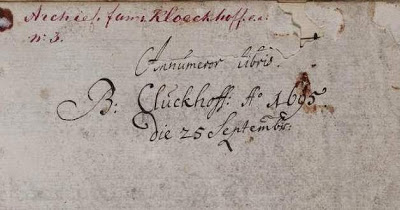 Archief fam. Kloeckhoff
n: 3.
Annumeror libris
B: Cluckhoff: Aº 1695
die 25 Septembr: